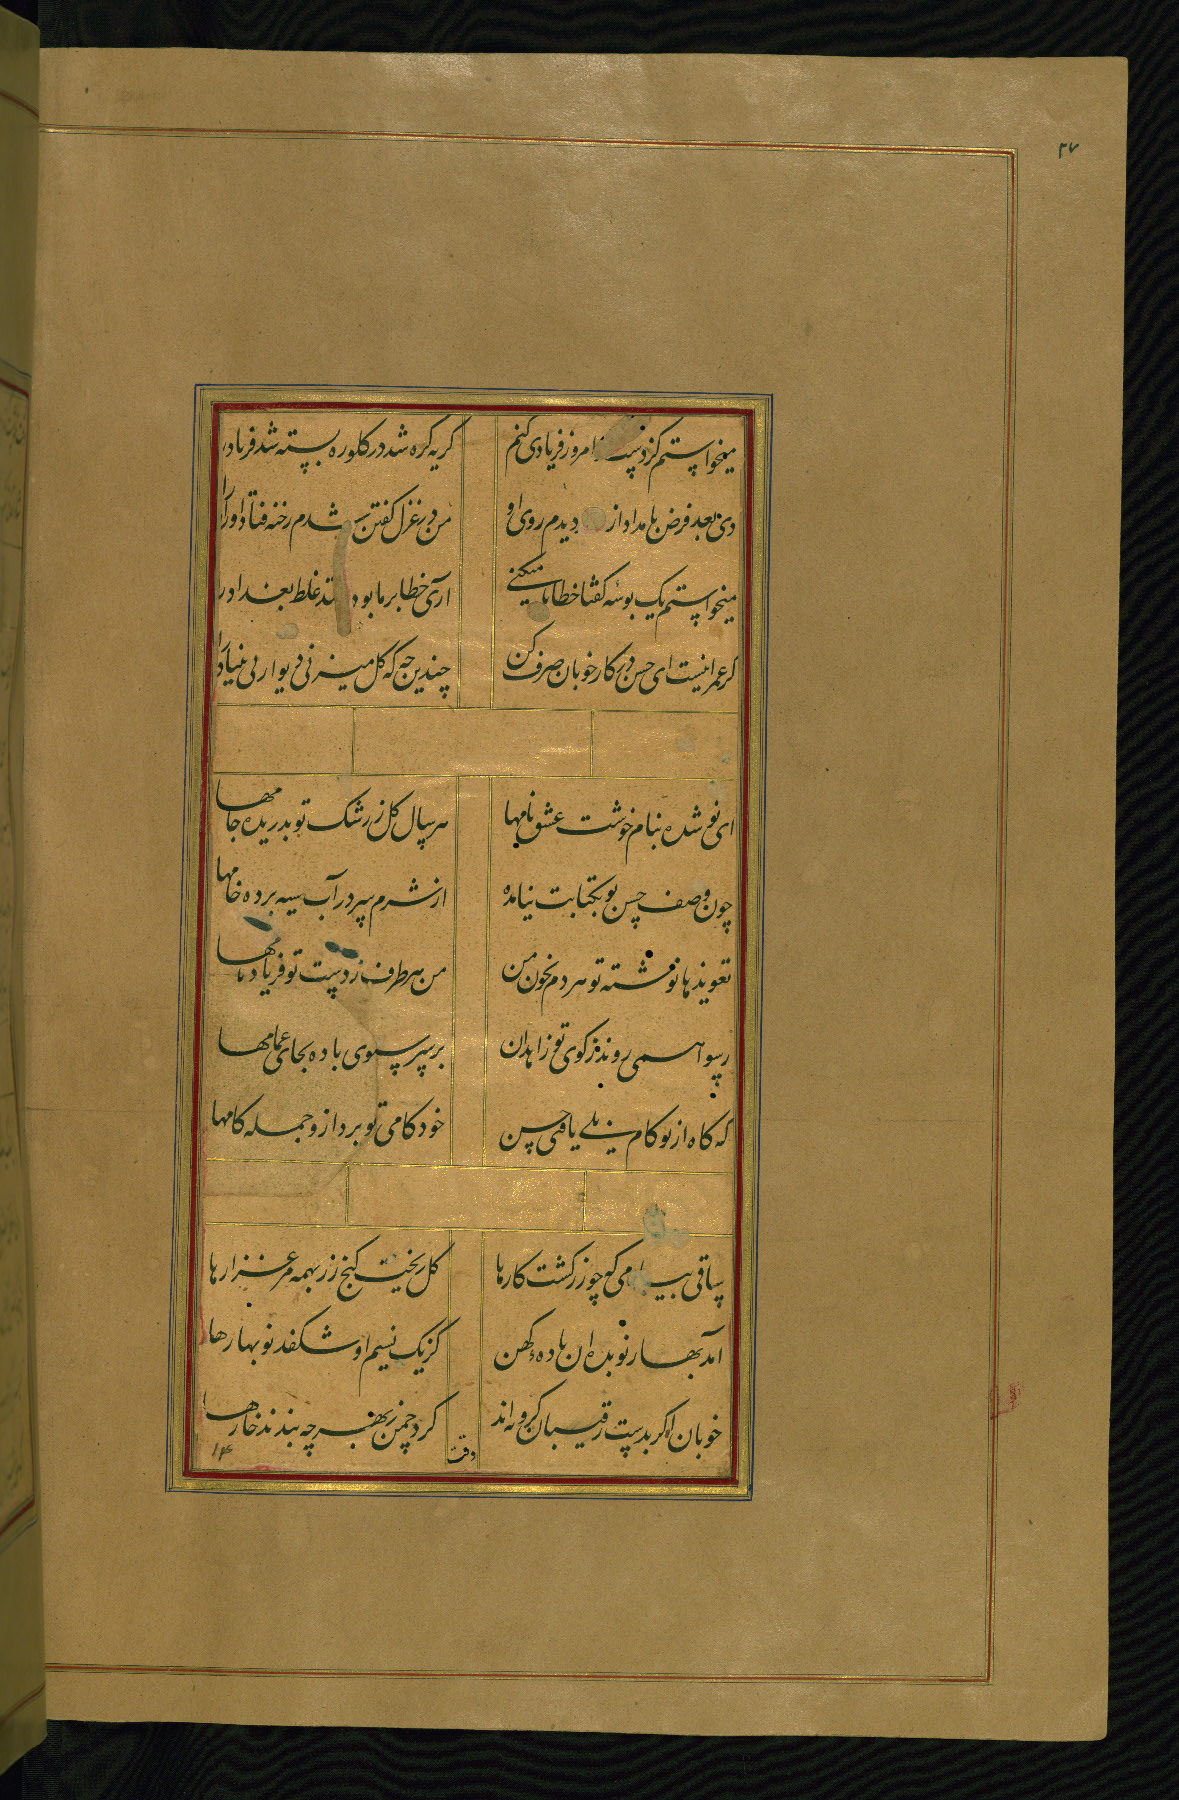 ۳۷
میخواستم کز دست امروز فریادی کنم
گریه گره شد در گلو ره بسته شد فریاد را
دی بعد فرض بامداد از دیدم روی او
من در غزل گفتن شدم رخنه فتاد اوراد را
میخواستم یک بوسه گفتا خطا میکنی
آری خطا بر ما بود غلط بغداد را
گر عمر انیست ای حسن در کار خوبان صرف کن
چندین چه گل میزنی دیوار بی بنیاد را
ای نو شده بنام خوشت عشق نامها
هر سال گل ز رشک تو بدریده جامها
چون وصف حسن تو بکتابت نیامده
از شرم سر در آب سیه برده خامها
تعویذها نوشته تو هر دم بخون من
من هر طرف ز دست تو فریادها
رسوا همی روند ز کوی تو زاهدان
بر سر سبوی باده بجای عمامها
که گاه از تو کام نیافتی حسن
خودکامی تو برد ازو جمله کامها
ساقی بیار می که چو زر گشت کارها
گل ریخت گنج زر بهمه مرغزارها
آمد بهار نو بده آن باده کهن
کز یک نسیم او شکفد نوبهارها
خوبان اگر بدست رقیبان گرو نه اند
گرد چمن ز بهر چه بندند خارها
وقت
۱۴